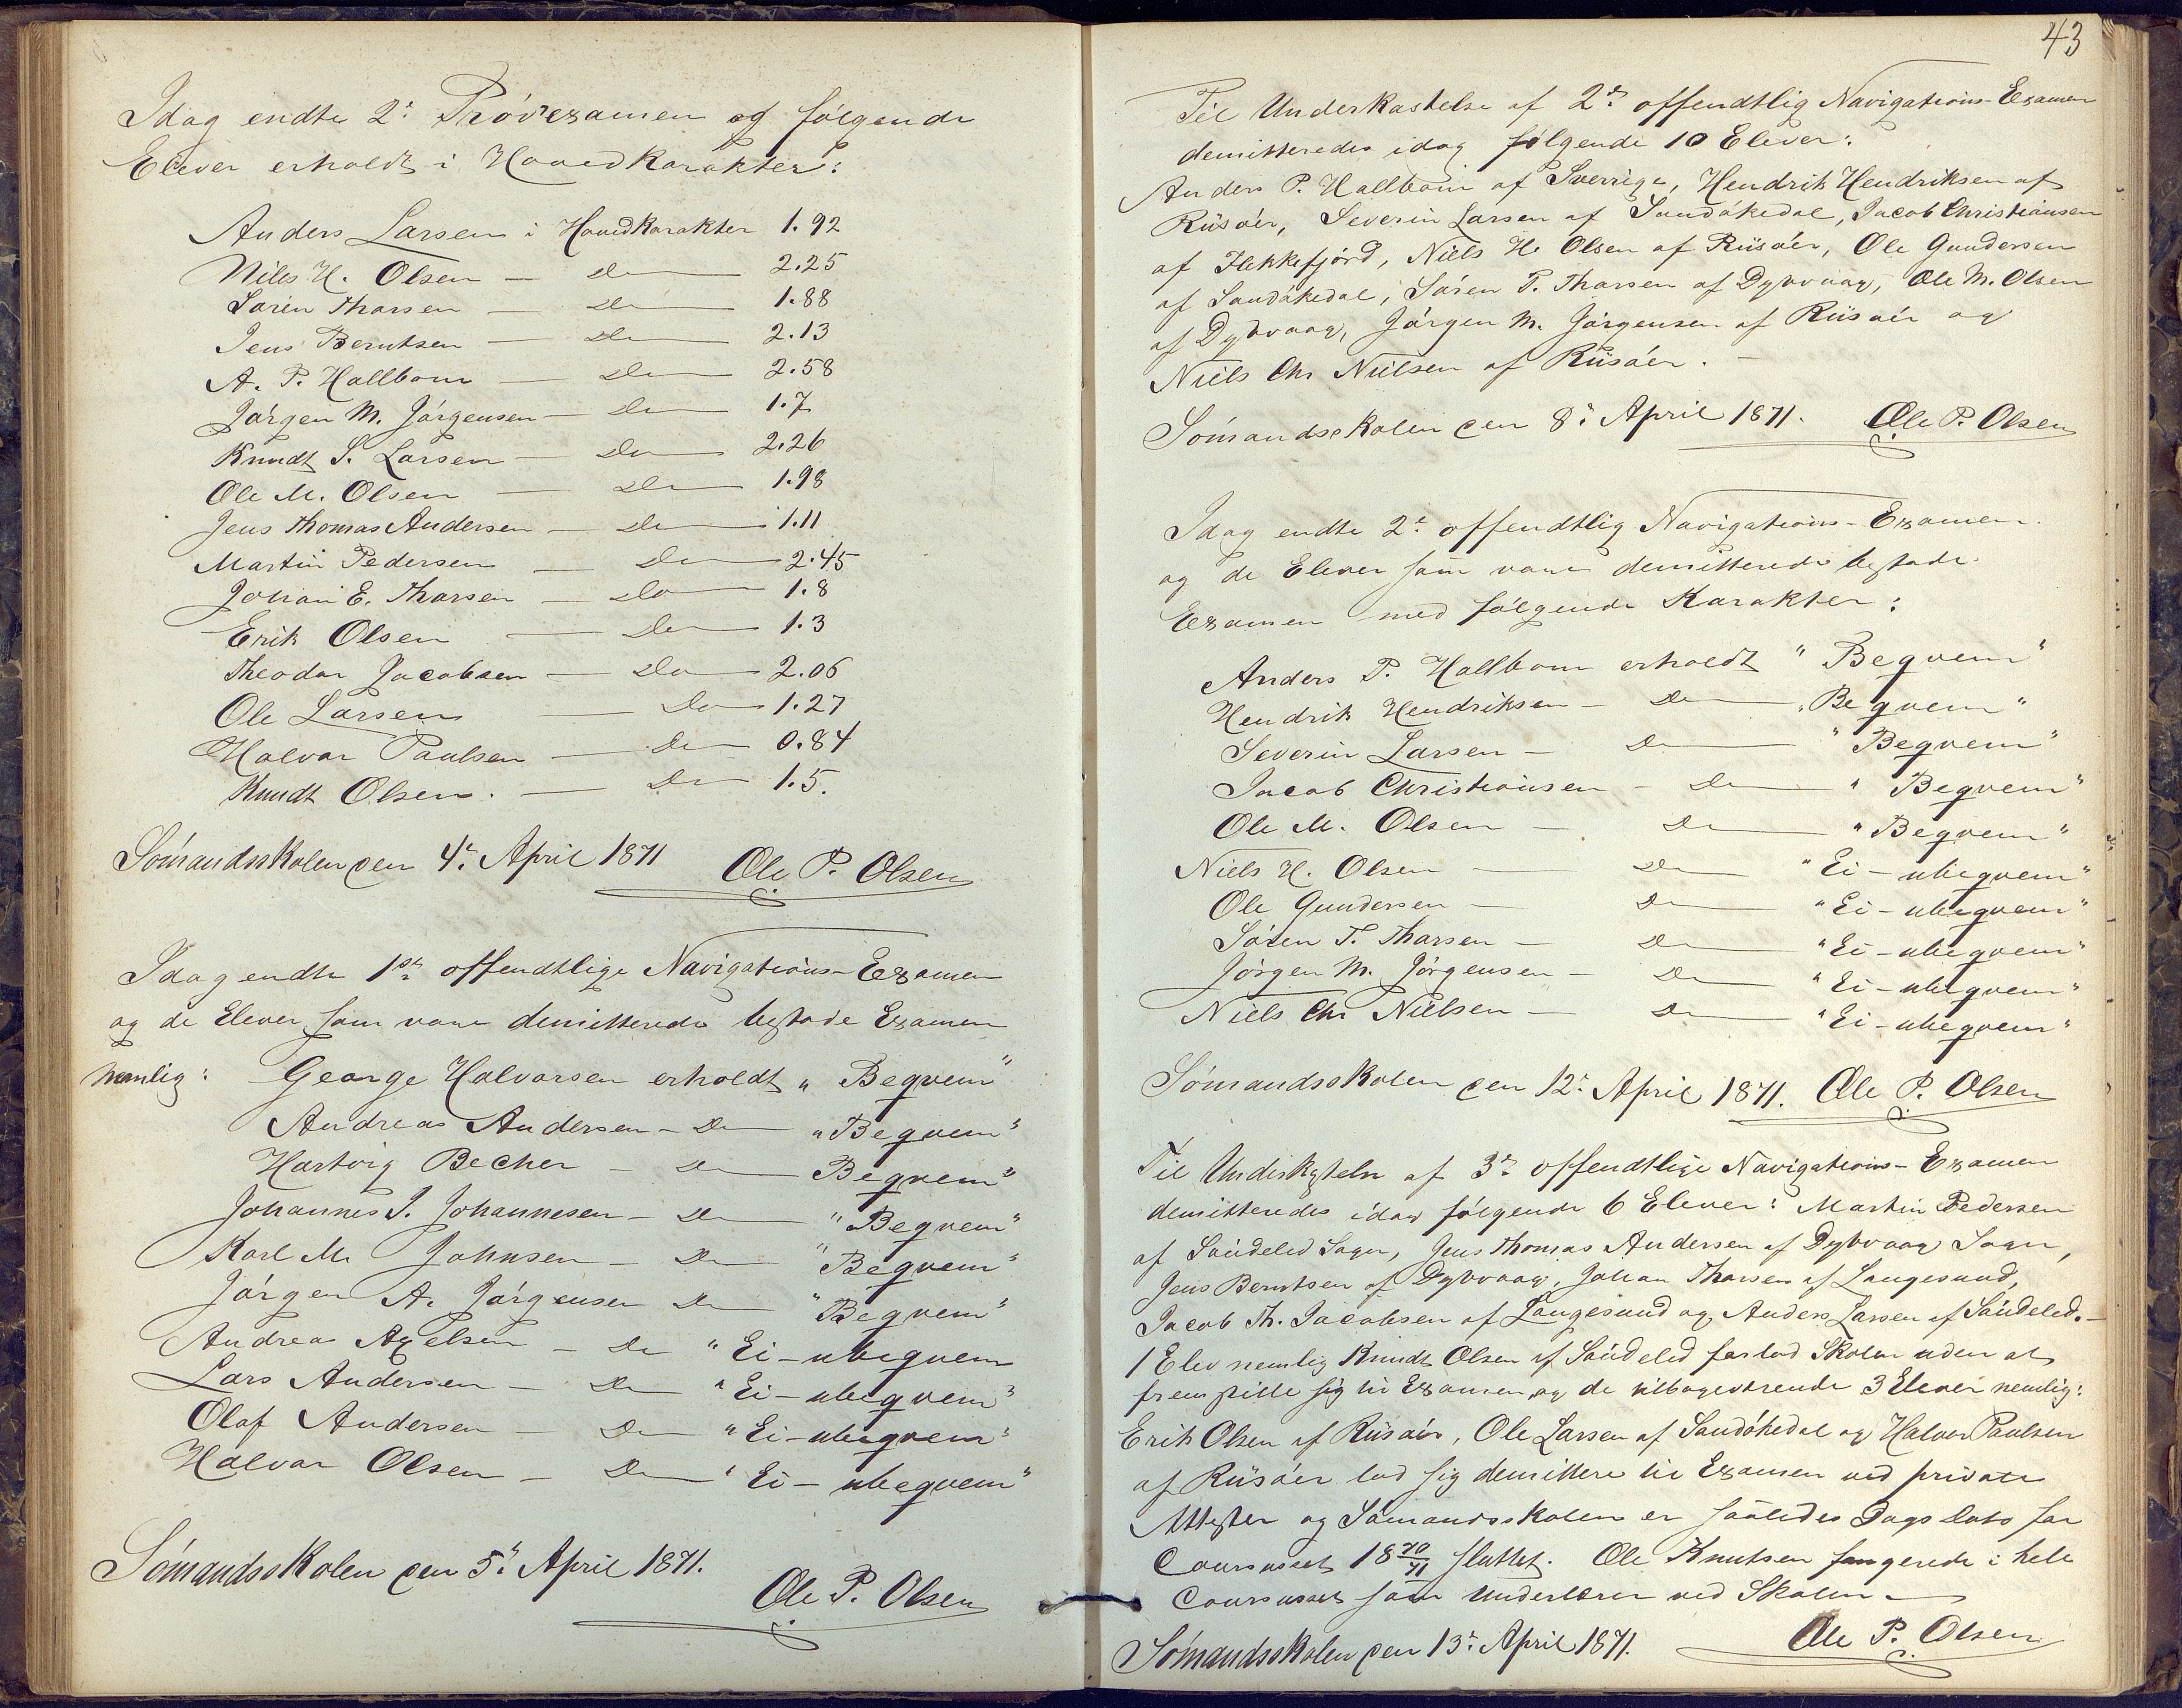 Idag endte 2: Prövexamen og følgende
Elever erholdt i Hovedkarakter:
Anders Larsen i Hovedkarakter 1.92
Niels H. Olsen — Do — 2.25
Sören Thorsen — Do — 1.88
Jens Berntsen — Do — 2.13
A. P. Hallbom — Do — 2.58
Jørgen M. Jørgensen — Do — 1.7
Knudt S. Larsen — Do — 2.26
Ole M. Olsen — Do — 1.98
Jens Thomas Andersen — Do — 1.11
Martin Pedersen — Do — 2.45
Johan E. Thorsen — Do — 1.8
Erik Olsen — Do — 1.3
Theodor Jacobsen — Do — 2.06
Ole Larsen — Do — 1.27
Halvor Paulsen — Do — 0.84
Knudt Olsen. — Do — 1.5.
Sömandsskolen den 4: April 1871 Ole P. Olsen
Idag endte 1ste offendtlige Navigations-Examen
og de Elever som vare demitterede bestode Examen
nemlig: George Halvorsen erholdt "Beqvem"
Andreas Andersen — Do — "Beqvem"
Hartvig Becher — Do — Beqvem"
Johannes J. Johannesen — Do — "Beqvem"
Karl M. Johnsen — Do — "Beqvem"
Jörgen A. Jörgensen Do — "Beqvem"
Andreas Axelsen — Do "Ei-ubeqvem
Lars Andersen — Do "Ei-ubeqvem"
Olaf Andersen — Do — "Ei-ubeqvem"
Halvor Olsen — Do — "Ei-ubeqvem"
Sömandsskolen den 5: April 1871.
Ole P. Olsen
43
Til Underkastelse af 2: offendtlig Navigations-Examen
demitteredes idag følgende 10 Elever:
Anders P. Hallbom af Sverrige, Hendrik Hendriksen af
Riisöer, Severin Larsen af Sandökedal, Jacob Christiansen
af Flekkefjörd, Niels H. Olsen af Riisöer, Ole Gundersen
af Sandökedal, Sören T. Thorsen af Dybvaag, Ole M. Olsen
af Dybvaag, Jörgen M. Jörgensen af Riisöer og
Niels Chr Nielsen af Riisöer. —
Sömandsskolen den 8: April 1871. Ole P. Olsen
Idag endte 2: offendtlig Navigations-Examen
og de Elever som vare demitterede bestode
Examen med følgende Karakter:
Anders P. Hallbom erholdt "Beqvem"
Hendrik Hendriksen — Do — "Beqvem"
Severin Larsen — Do — "Beqvem"
Jacob Christiansen — Do — "Beqvem"
Ole M. Olsen — Do — "Beqvem"
Niels H. Olsen — Do — "Ei-ubeqvem"
Ole Gundersen — Do — "Ei-ubeqvem"
Sören T. Thorsen — Do — "Ei-ubeqvem"
Jörgen M. Jörgensen — Do — "Ei-ubeqvem"
Niels Chr Nielsen — Do — "Ei-ubeqvem"
Sömandsskolen den 12: April 1871. Ole P. Olsen
Til af 3: offendtlige Navigations-Examen
demitteredes idag følgende 6 Elever: Martin Pedersen
af Söndeled Sogn, Jens Thomas Andersen af Dybvaag Sogn,
Jens Berntsen af Dybvaag, Johan Thorsen af Langesund,
Jacob Th. Jacobsen af Langesund og Anders Larsen af Söndeled. —
1 Elev nemlig Knudt Olsen af Söndeled forlod Skolen uden at
fremstille sig til Examen, og de tilbageværende 3 Elever nemlig:
Erik Olsen af Riisöer, Ole Larsen af Sandökedal og Halvor Paulsen
af Riisöer lod sig demittere til Examen ved private
Attester og Sömandsskolen er saaledes Dags Dato for
Coursuset 18 70/71 sluttet. Ole Knutsen fungerede i hele
Coursuset som Underlærer ved Skolen —
Sömandsskolen den 13: April 1871. Ole P. Olsen